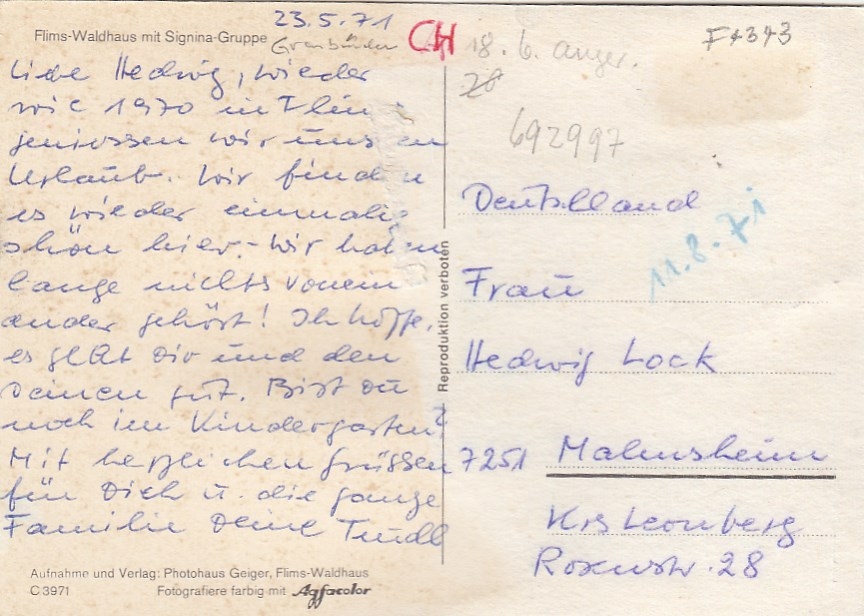 23.5.71
Flims-Waldhaus mit Signina-Gruppe
Graubünden
CH
18. 6. anger.
20
F4343
692997
Liebe Hedwig, wieder
wie 1970 in Flims
geniessen wir uns en
Urlaub. Wir finden
es wieder einmalig
schön hier. - Wir haben
lange nichts vonein
ander gehört! Ich hoffe,
es geht Dir und den
Deinen gut. Bist Du
noch im Kindergarten?
Mit herzlichen Grüssen
für Dich u. die ganze
Familie Deine Trudl
Reproduktion verboten
Deutschland
11.8.71
Frau
Hedwig Lock
7251 Malmsheim
Krs Leonberg
Rosenstr. 28
Aufnahme und Verlag: Photohaus Geiger, Flims-Waldhaus
C 3971 Fotografiere farbig mit Agfacolor